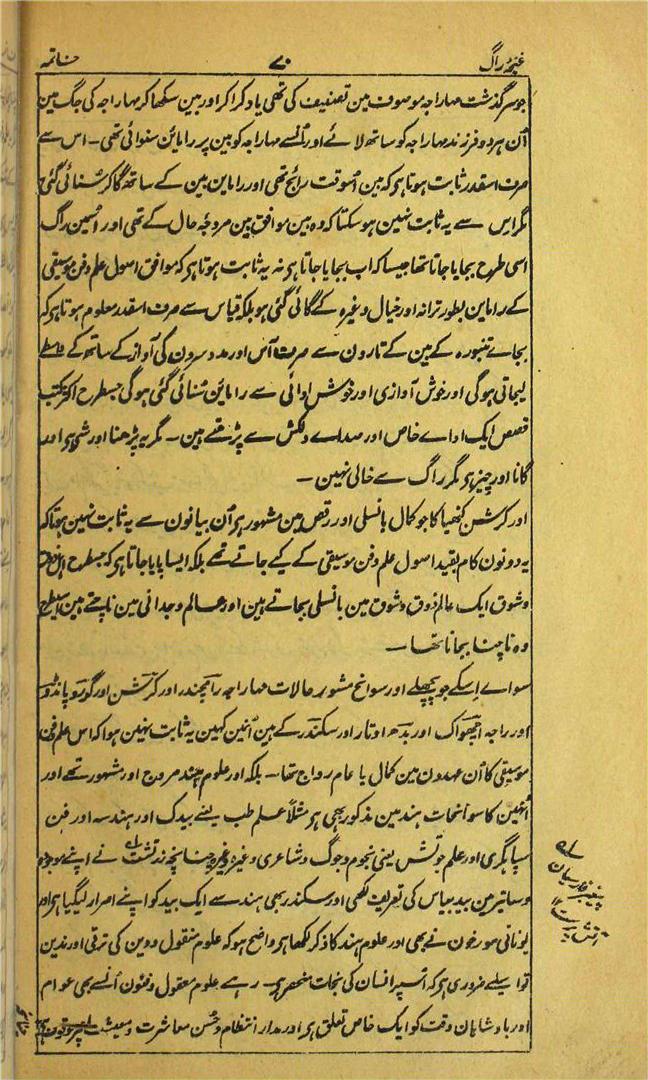 غنچۂ راگ ۷۰ خاتمہ
جو سرگذشت مہاراجہ موصوف مین تصنیف کی تھی یاد کرا کر اور بین سکھا کر مہاراجہ کی جگ مین
اُن ہر دو فرزند مہاراجہ کو ساتھ لائے اور اُنسے مہاراجہ کو بین پر راماین سنوائی تھی ۔ اس سے
صرف اسقدر ثابت ہوتا ہو کہ بین اُسوقت رائج تھی اور راماین بین کے ساتھ گا کر سُنائی گئی
مگر اس سے یہ ثابت نہین ہو سکتا کہ وہ بین موافق بین مروجۂ حال کے تھی اور اُسمین راگ
اسی طرح بجایا جاتا تھا جیسا کہ اب بجایا جاتا ہو نہ یہ ثابت ہوتا ہو کہ موافق اصول علم و فن موسیقی
کے راماین بطور ترانہ اور خیال وغیرہ کے گائی گئی ہو بلکہ قیاس سے صرف اسقدر معلوم ہوتا ہو کہ
بجاے تنبورہ کے بین کے تارون سے صرف آس اور مدد سرون کی آواز کے ساتھ کے واسطے
لیجاتی ہوگی اور خوش آوازی اور خوش ادائی سے راماین سُنائی گئی ہوگی جسطرح اکثر کتب
قصص ایک اداے خاص اور صداے دلکش سے پڑھتے ہین ۔ مگر یہ پڑھنا اور شی ہو اور
گانا اور چیز ہو مگر راگ سے خالی نہین ۔
اور کرشن کنھیا کا جو کمال بانسلی اور رقص مین مشہور ہو اُن بیانون سے یہ ثابت نہین ہوتا کہ
یہ دونون کام بقید اصول علم و فن موسیقی کے کیے جاتے تھے بلکہ ایسا پایا جاتا ہو کہ جسطرح اہل ذوق
و شوق ایک عالم ذوق و شوق مین بانسلی بجاتے ہین اور عالم وجدانی مین ناچتے ہین اسیطرح
وہ ناچنا بجانا تھا ۔
سواے اِسکے جو پچھلے اور سوانح مشہور حالات مہاراجہ رامچندر اور کرشن اور گورو پانڈو
اور راجہ اچھواک اور بدھ اوتار اور سکندر کے ہین اُنمین کہین یہ ثابت نہین ہوا کہ اس علم و فن
موسیقی کا اُن عہدون مین کمال یا عام رواج تھا ۔ بلکہ اور علوم ہند مروج اور مشہور تھے اور
اُنھین کا سوانحات ہند مین مذکور بھی ہو مثلاً علم طب یعنے بیدک اور ہندسہ اور فن
سپاہگری اور علم جوتش یعنی نجوم و جوگ و شاعری وغیرہ وغیرہ چنانچہ زرتشت لہ نے اپنے
وساتیر مین بید بیاس کی تعریف لکھی اور سکندر بھی ہند سے ایک بید کو اپنے اصرار لیگیا ہو اور
یونانی مورخون نے بھی اور علوم ہند کا ذکر لکھا ہو واضح ہو کہ علوم منقول و دین کی ترقی اور تدین
تو اسلیے ضروری ہو کہ اُسپر انسان کی نجات منحصر ہو ۔ رہے علوم معقول و فنون اُنسے بھی عوام
اور بادشاہان وقت کو ایک خاص تعلق ہو اور مدار انتظام و حُسن معاشرت و معیشت
لہ
پیغمبر فارسیان